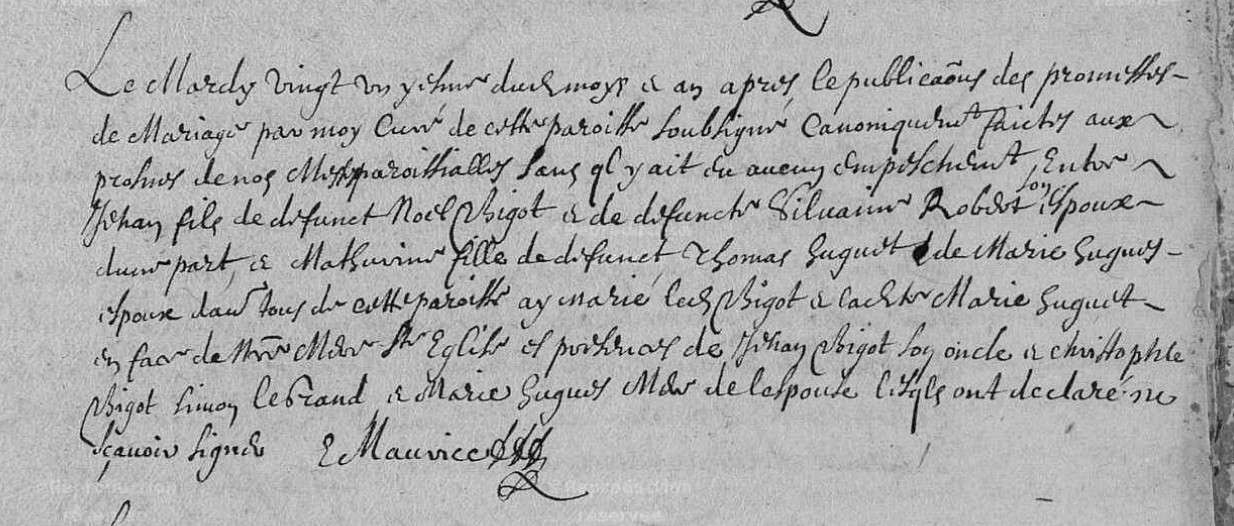 Le Mardy vingt un yesme dud moys e an apres le publicaõns des promesses
de Mariage par moy Curé de cette paroisse soubsigné Canoniquemt faictes aux
prosnes de nos Messes paroissialles sans ql y ait eu aucun empeschemt, Entre
Jehan fils de defunct Noel Bigot e de defuncte Silvaine Robert son espouse
dune part, e Mathurine fille de defunct Thomas huguet e de Marie hugues
espoux dau tous de cette paroisse ay marié led Bigot e ladte Marie huguet
en face de Nre Mere Ste Eglise es presences de Jehan Bigot son oncle e christophle
Bigot simon leGrand e Marie hugues Mere de lespouse lesqls ont declaré ne
sçavoir signer E Maurice